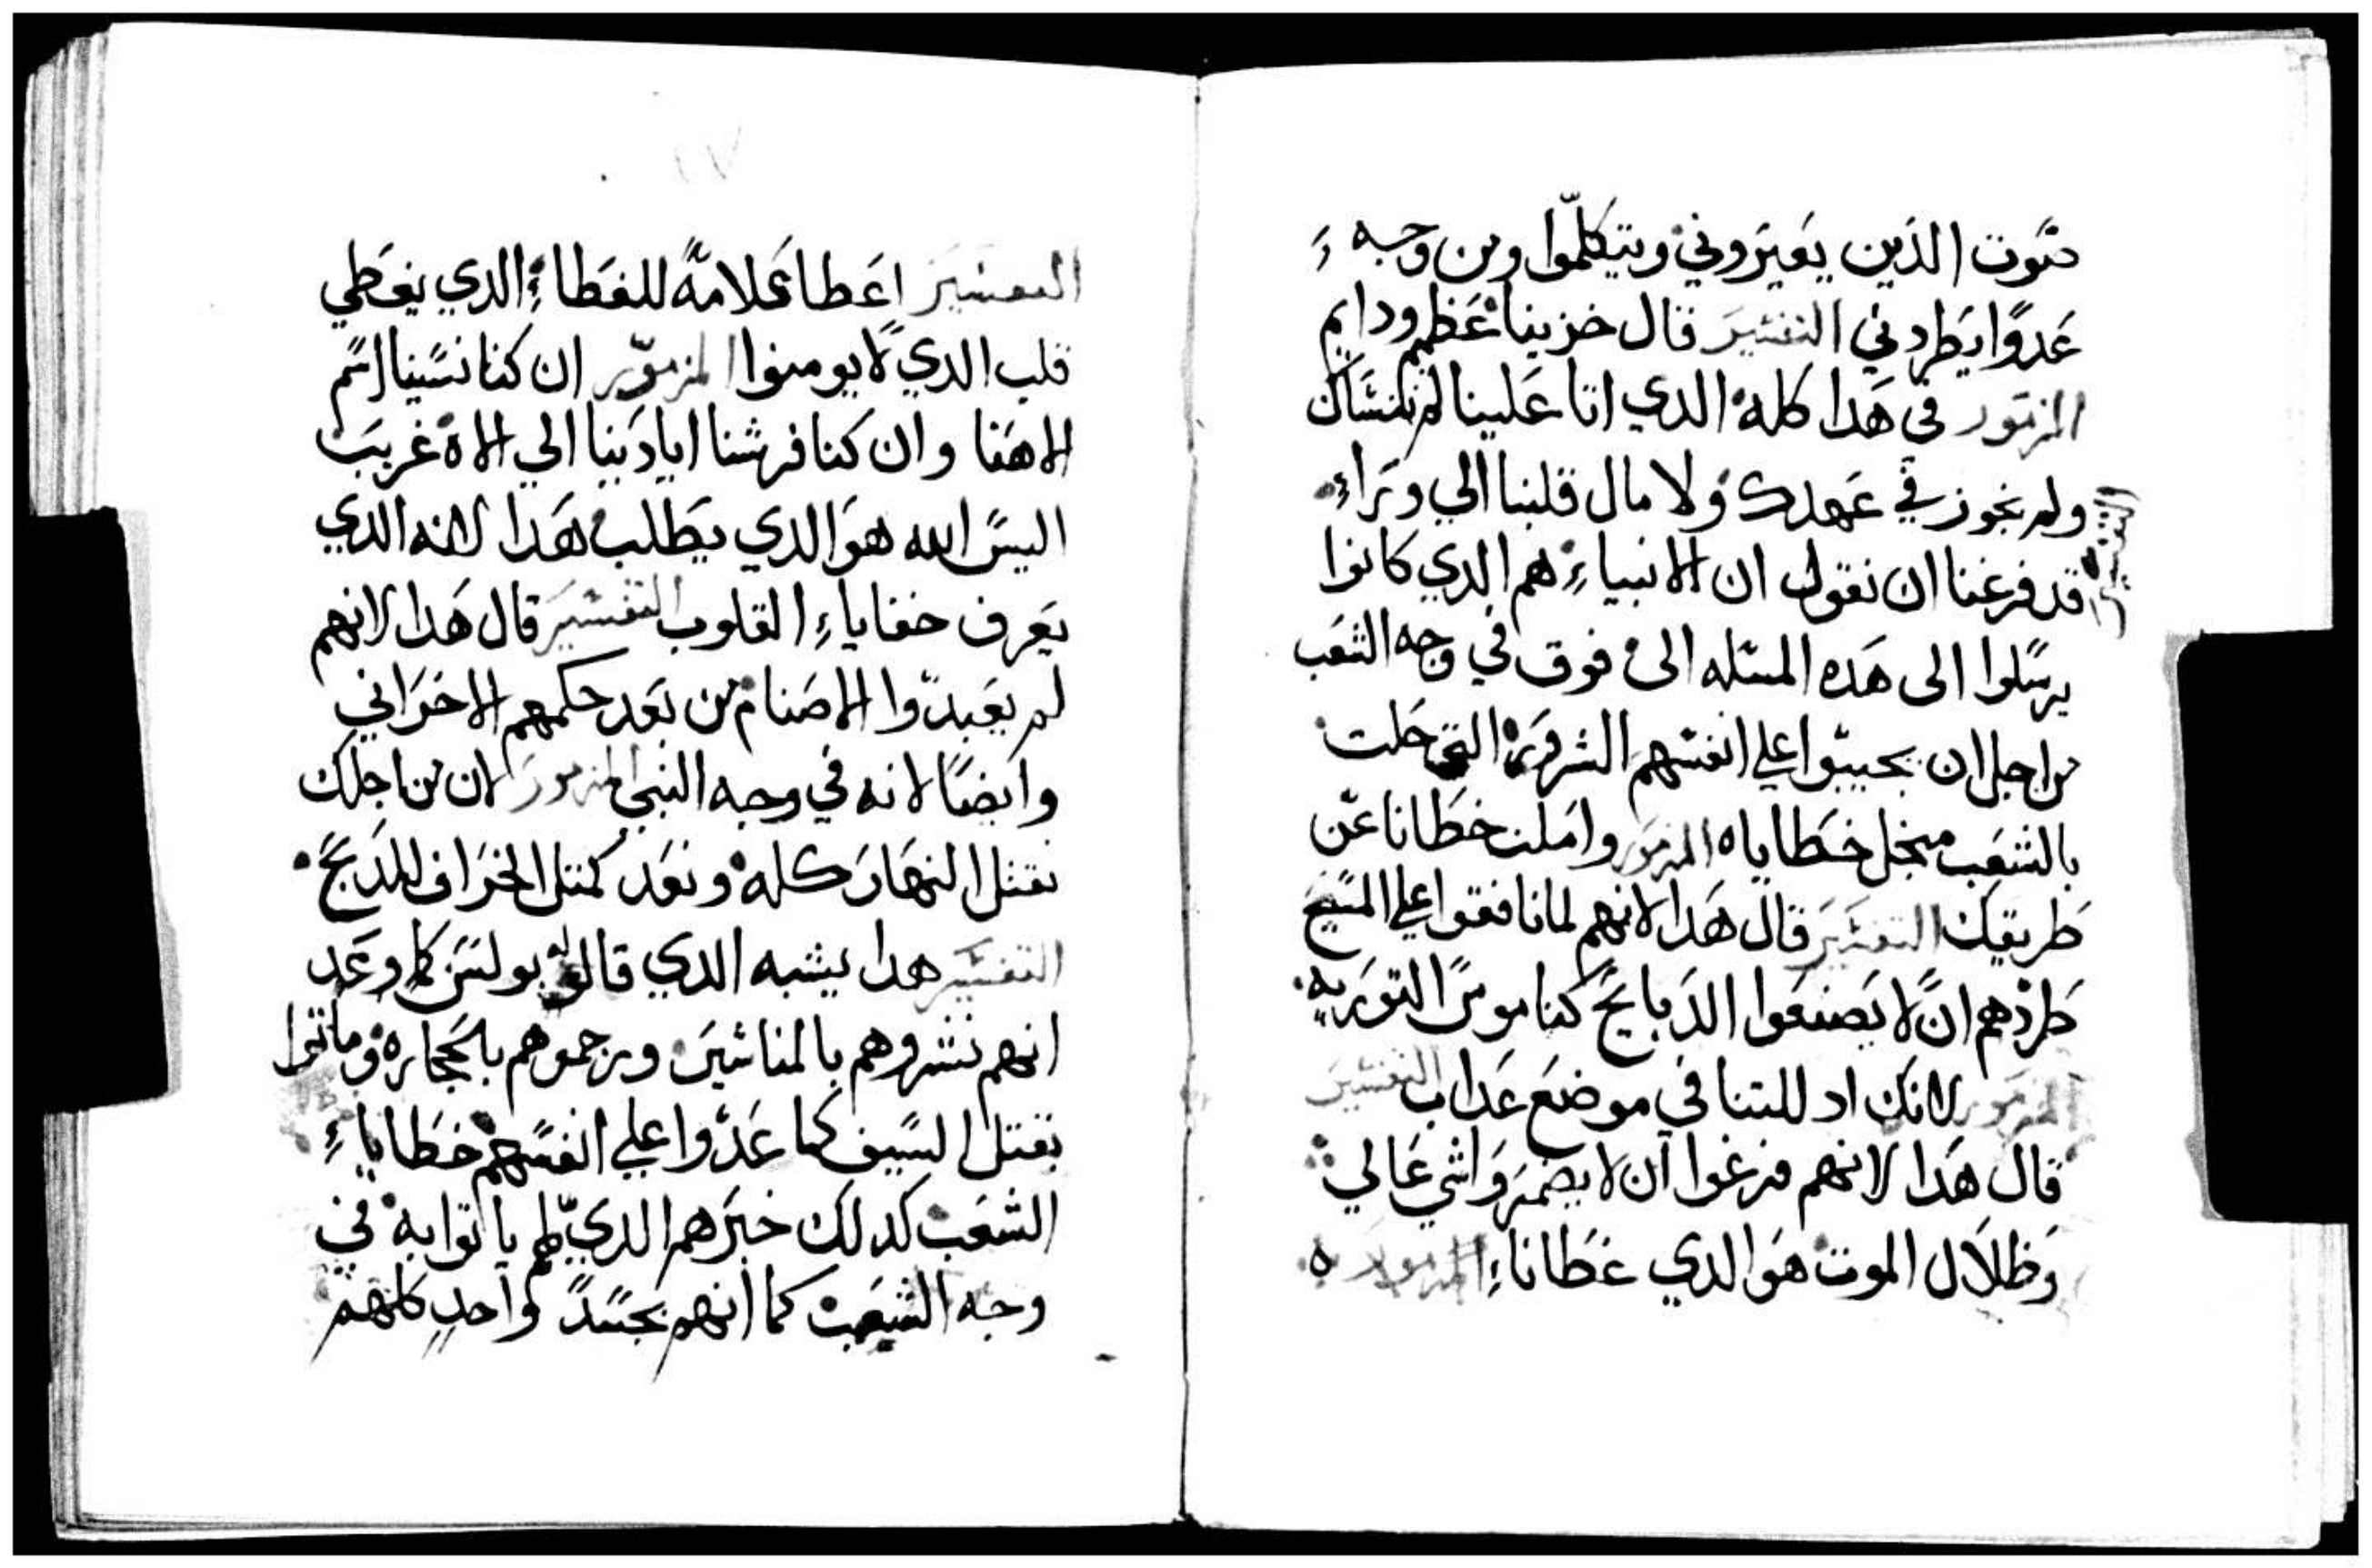 صوت الذين يعيروني ويتكلموا ومن وجه
عدوا يطردني التفسير قال خزينا عظيم ودايم
المزمور في هدا كله الدي اتا علينا لم ننساك
ولم نجوز في عهدك ولا مال قلبنا الي وراء
التفسير
قد فرغنا ان نقول ان الانبياء هم الدي كانوا
يرسلوا الى هده المسله الى فوق في وجه الشعب
من اجل ان يجيبوا علي انفسهم الشرور التي حلت
بالشعب منجل خطاياه المزمور واملت خطانا عن
طريقك التفسير قال هدا لانهم لما نافقوا علي المسيح
طردهم ان لا يصنعوا الدبايح كناموس التوريه
المزمور لانك اد للتنا في موضع عداب التفسير
قال هدا لانهم فرغوا ان لا يضمروا شي عالي
وظلال الموت هو الدي غطانا المزمور
١٧
التفسير اعطا علامة للغطاء الدي يغطي
قلب الدي لا يومنوا المزمور ان كنا نسينا اسم
الاهنا وان كنا فرشنا ايادينا الي الاه غريب
اليس الله هو الدي يطلب هدا لانه الدي
يعرف خفاياء القلوب التفسير قال هدا لانهم
لم يعبدوا الاصنام من بعد حكمهم الاخراني
وايضا لانه في وجه النبي المزمور لان من اجلك
نقتل النهار كله ونعد كمتل الخراف للدبح
التفسير هدا يشبه الدي قاله بولس كما وعد
انهم نشروهم بالمناشير ورجموهم بالحجاره وماتوا
بقتل السيف كما عدوا علي انفسهم خطاياء
الشعب كدلك خبرهم الدي لم ياتوا به في
وجه الشعب كما انهم بجسد واحد كلهم